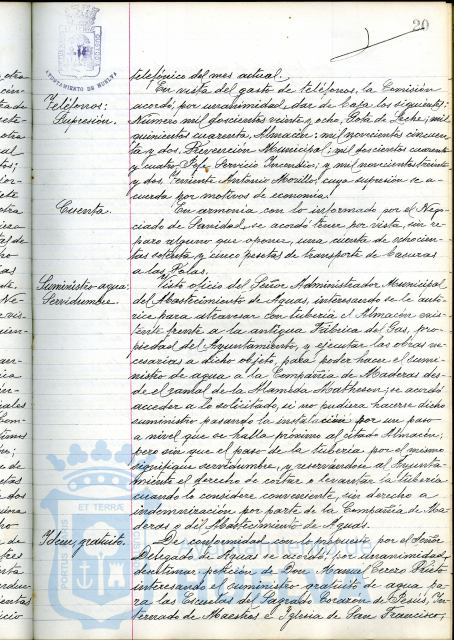 20
AYUNTAMIENTO DE HUELVA
telefónico del mes actual.
Teléfonos:
Supresión.
En vista del gasto de teléfonos, la Comisión
acordó, por unanimidad, dar de baja los siguientes:
Número mil doscientos veinte y ocho, Gota de Leche; mil
quinientos cuarenta, Almacén; mil novecientos cincuen-
ta y dos, Prevención Municipal; mil doscientos cuarenta
y cuatro, Jefe Servicio Incendio; y mil novecientos treinta
y dos, Teniente Antonio Morillo; cuya supresión se a-
cuerda por motivos de economía.
Cuenta.
En armonía con lo informado por el Nego-
ciado de Sanidad, se acordó tener por vista, sin re-
paro alguno que oponer, una cuenta de ochocien-
tas setenta y cinco pesetas de transporte de basuras
a las Islas.
Suministro agua:
Servidumbre.
Visto oficio del Señor Administrador Municipal
del Abastecimiento de Aguas, interesando se le auto-
rice para atravesar con tubería el Almacén exis-
tente frente a la antigua Fábrica del Gas, pro-
piedad del Ayuntamiento, y ejecutar las obras ne-
cesarias a dicho objeto, para poder hacer el sumi-
nistro de agua a la Compañía de Maderas des-
de el ramal de la Alameda Mathesson; se acordó
acceder a lo solicitado, si no pudiera hacerse dicho
suministro pasando la instalación por un paso
a nivel que se halla próximo al citado Almacén;
pero sin que el paso de la tubería por el mismo
signifique servidumbre, y reservándose el Ayunta-
miento el derecho de cortar o levantar la tubería
cuando lo considere conveniente, sin derecho a
indemnización por parte de la Compañía de Ma-
deras y del Abastecimiento de Aguas.
Idem, gratuito.
De conformidad con lo propuesto por el Señor
Delegado de Aguas se acordó, por unanimidad,
desestimar petición de Don Manuel Cerezo Prieto
interesando el suministro gratuito de agua pa-
ra las Escuelas del Sagrado Corazón de Jesús, In-
ternado de Maestros e Iglesia de San Francisco;
ET TERRAE